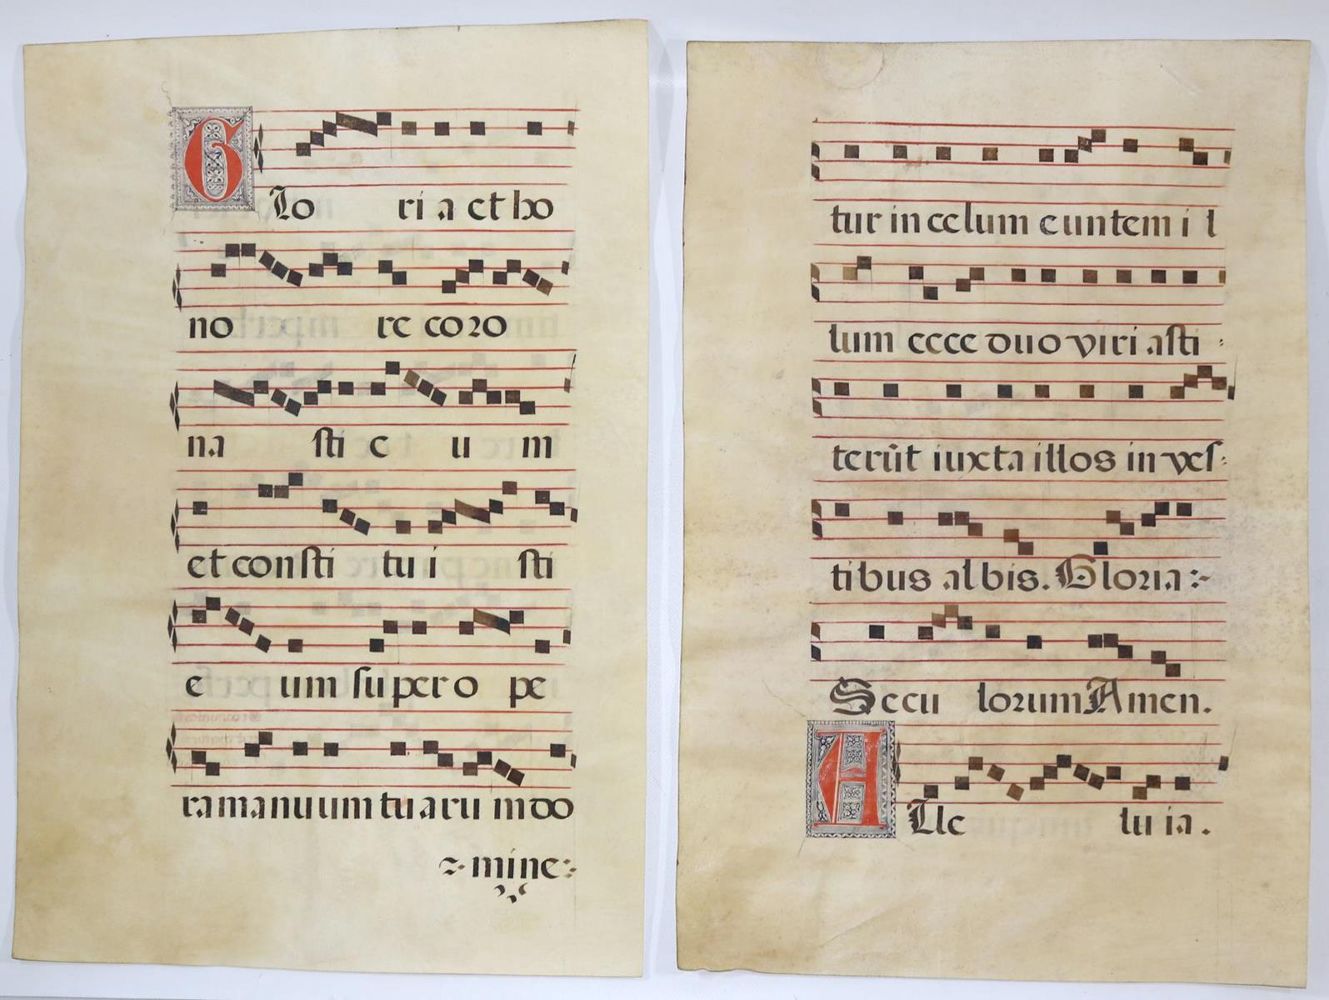 Glo ri a et ho
no re coro
na sti e u m
et consti tu i sti
e um super o pe
ra manuum tuaru m do
mine
tur in celum euntem i l
lum ecce duo viri asti
terūt iuxta illos in ves
tibus albis. Gloria
Secu lorum Amen.
Alle lu ia.